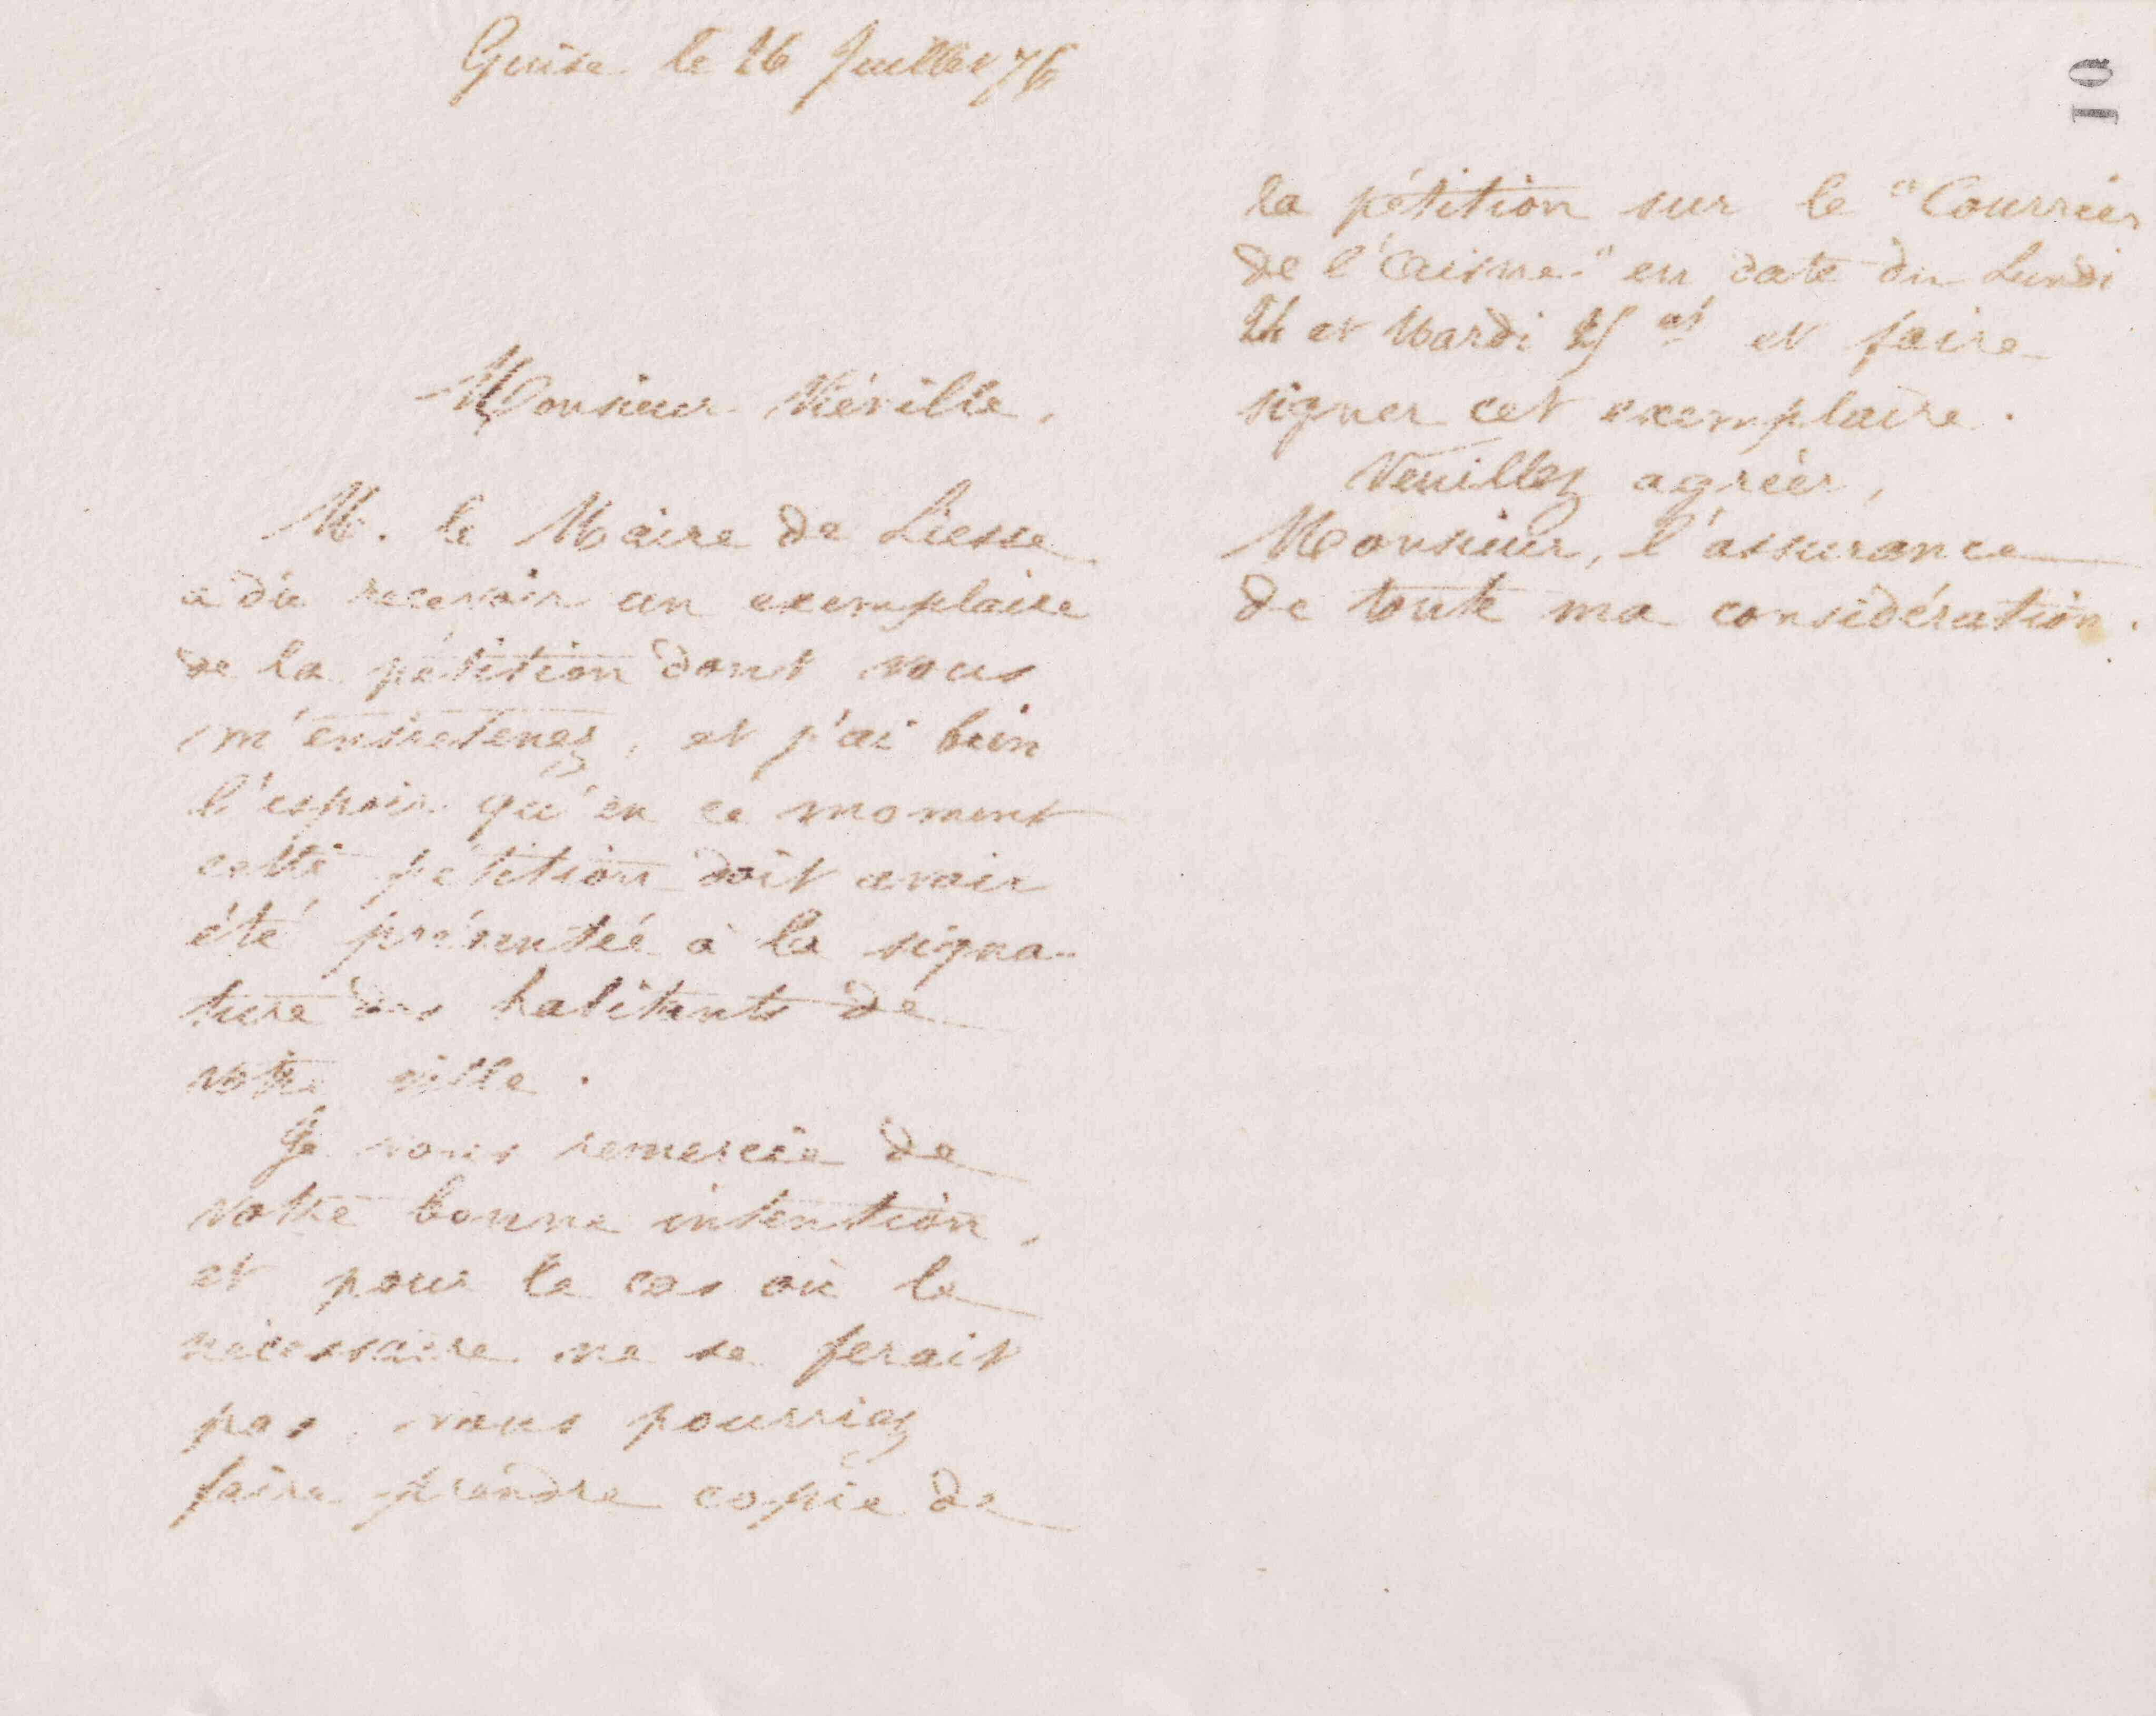 Guise le 26 Juillet 76
10
Monsieur Viéville,
M. le Maire de Liesse
a dû recevoir un exemplaire
de la pétition dont vous
m'entretenez, et j'ai bien
l'espoir qu'en ce moment
cette pétition doit avoir
été présentée à la signa-
ture des habitants de
votre ville.
Je vous remercie de
votre bonne intention,
et pour le cas où le
nécessaire ne se ferait
pas, vous pourriez
faire prendre copie de
la pétition sur le "Courrier
de l'Aisne" en date du Lundi
24 et Mardi 25 et et faire
signer cet exemplaire.
Veuillez agréer,
Monsieur, l'assurance
de toute ma considération.